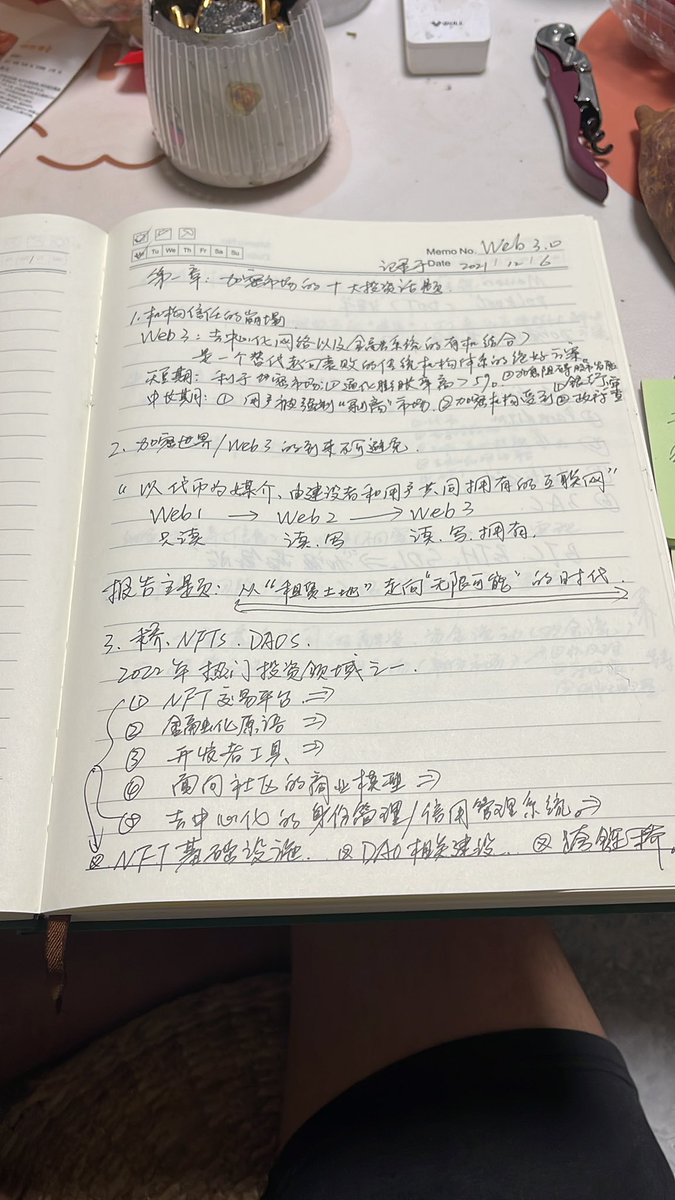 Memo No. Web 3.0
Tu We Th Fr Sa Su
记录于 Date 2021 / 12 / 6
第一章：加密市场的十大投资话题
1. 机构信任的崩塌
Web 3：去中心化网络以及金融系统的有机结合）
是一个替代赴向衰败的传统机构体系的绝好方案
短期：利于加密市场：① 通化膨胀率高 > 5%
中长期：① 用户被强制“剥离”市场 ② 加密机构受到
2. 加密世界 / Web 3 的到来不可避免.
“以代币为媒介、由建设者和用户共同拥有的互联网”
Web1 → Web2 → Web3
只读 读、写 读、写、拥有.
报告主题：从“租赁土地”走向“无限可能”的时代.
3. 桥、NFTs、DAOs.
2022年热门投资领域之一.
① NFT交易平台 ⇒
② 金融化原语 ⇒
③ 开发者工具 ⇒
④ 面向社区的商业模型 ⇒
⑤ 去中心化的身份管理/信用管理系统 ⇒
NFT基础设施. DAO相关建设. 跨链桥.